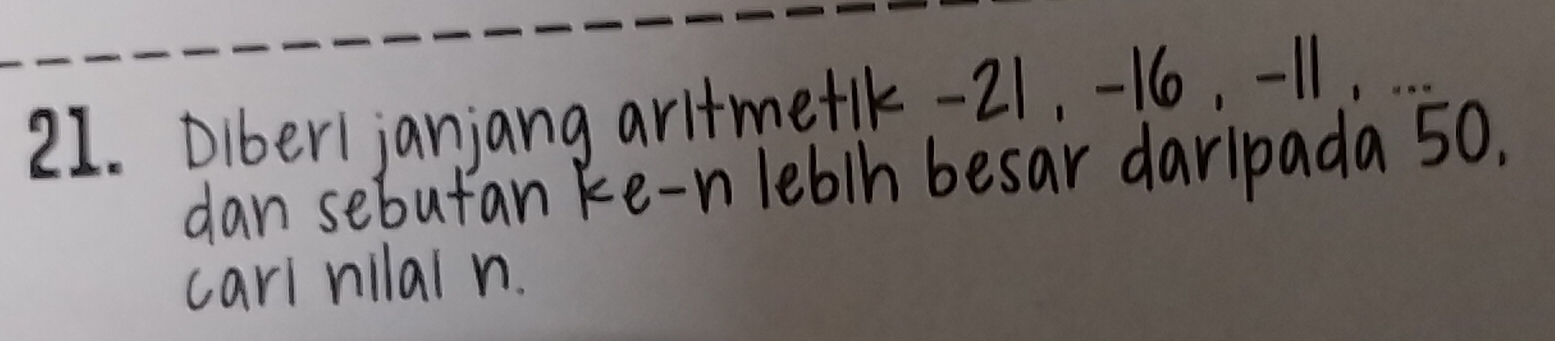 21. Diberi janjang aritmetik -21, -16, -11, ...
dan sebutan ke-n lebih besar daripada 50,
cari nilai n.